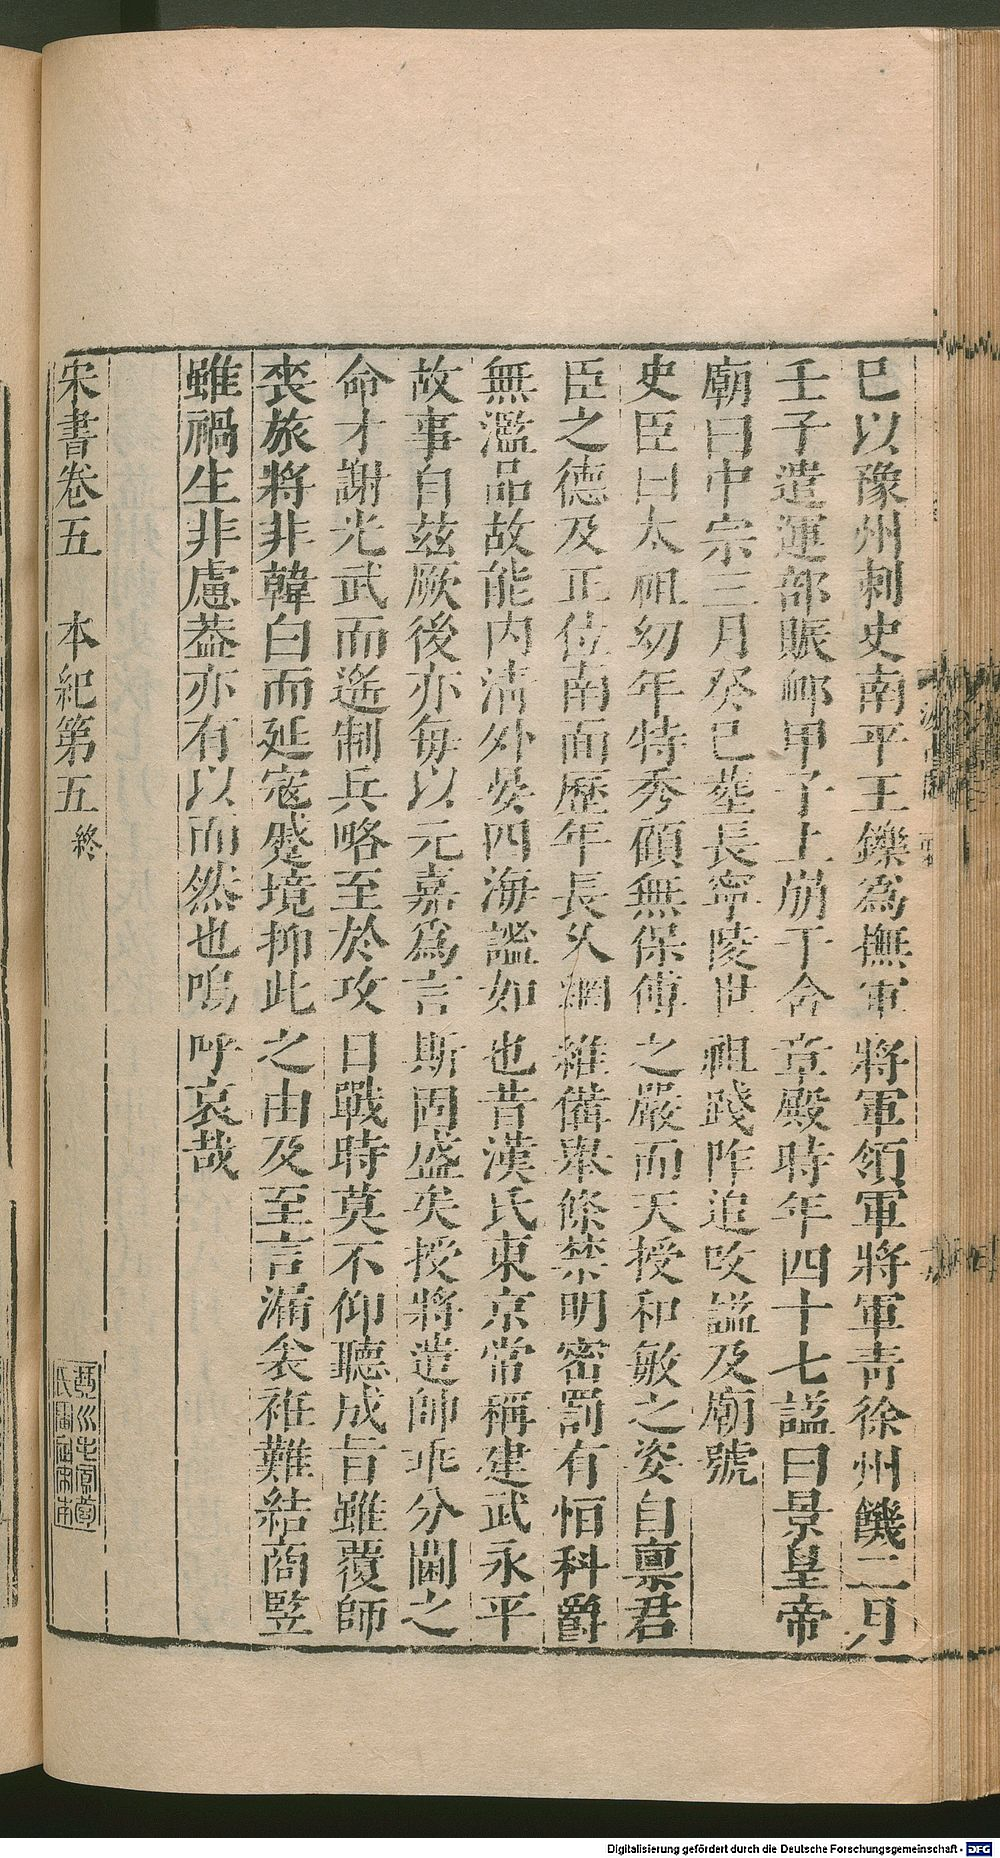 巳以豫州刺史南平王鑠爲撫軍將軍領軍將軍青徐州饑二月
壬子遣運部賑邺甲子上崩于合章殿時年四十七謚曰景皇帝
廟曰中宗三月癸巳葬長寧陵世祖踐阼追攺謚及廟號
史臣曰太祖幼年特秀顧無保傅之嚴而天授和敏之姿自禀君
臣之德及正位南面歷年長久綱維備舉條禁明密罰有恒科爵
無濫品故能内清外晏四海謐如也昔漢氏東京常稱建武永平
故事自兹厥後亦每以元嘉爲言斯固盛矣授將遣帥乖分閫之
命才謝光武而遙制兵略至於攻日戰時莫不仰聽成旨雖覆師
喪旅將非韓白而延寇蹙境抑此之由及至言漏衾袵難結商竪
雖禍生非慮葢亦有以而然也嗚呼哀哉
宋書卷五 本紀第五終